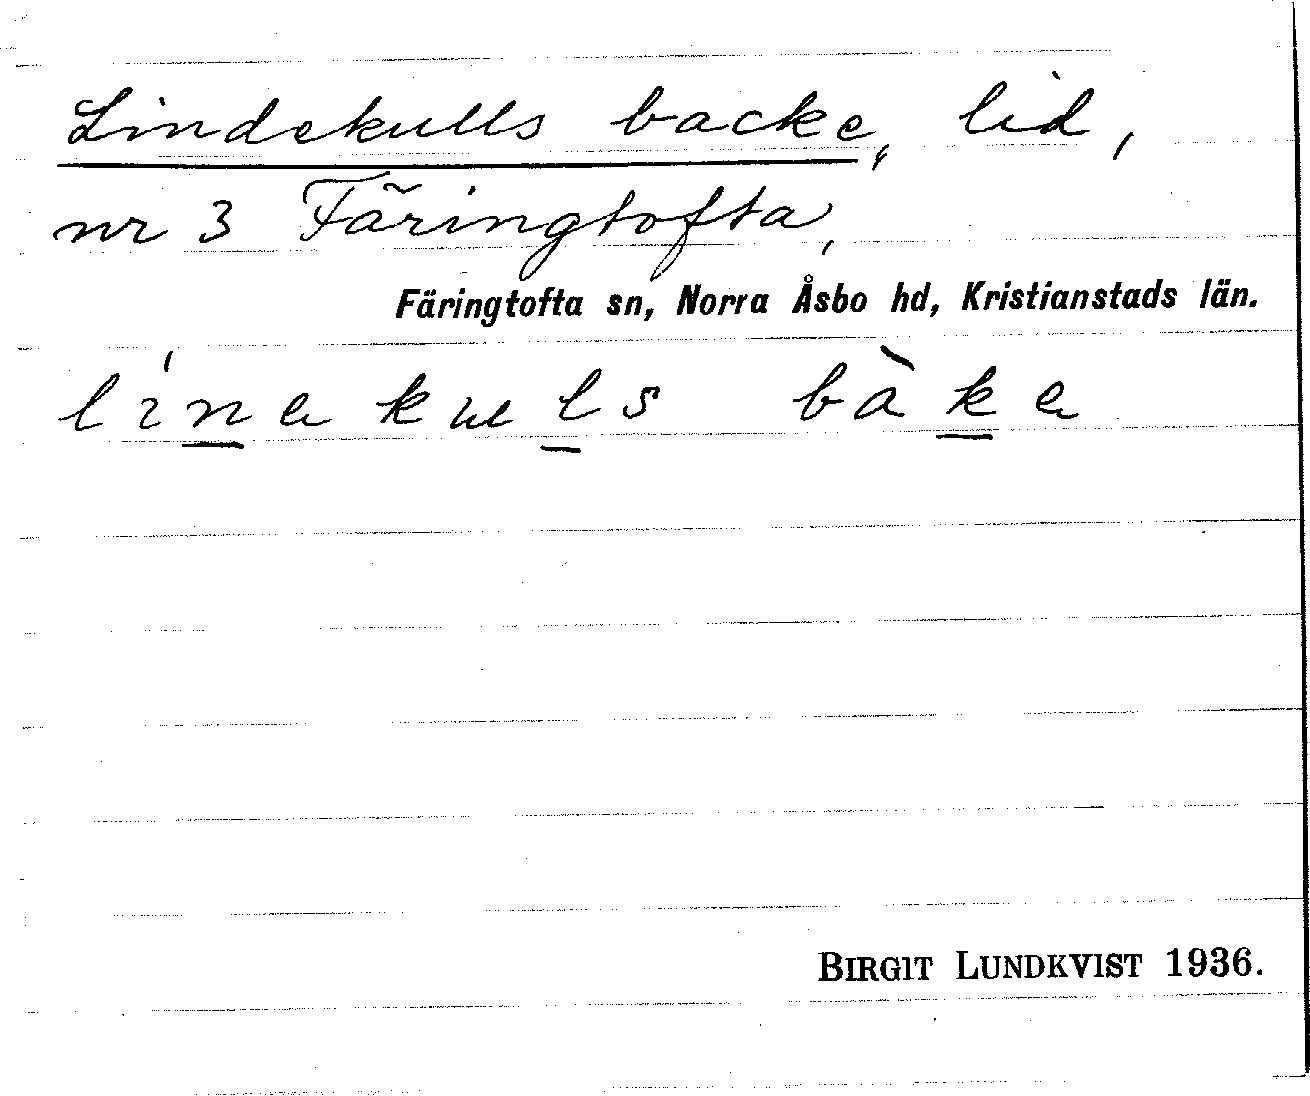 Lindekulls backe, lid,
nr 3 Färingtofta,
Färingtofta sn, Norra Åsbo hd, Kristianstads län.
línekuls bàke
BIRGIT LUNDKVIST 1936.